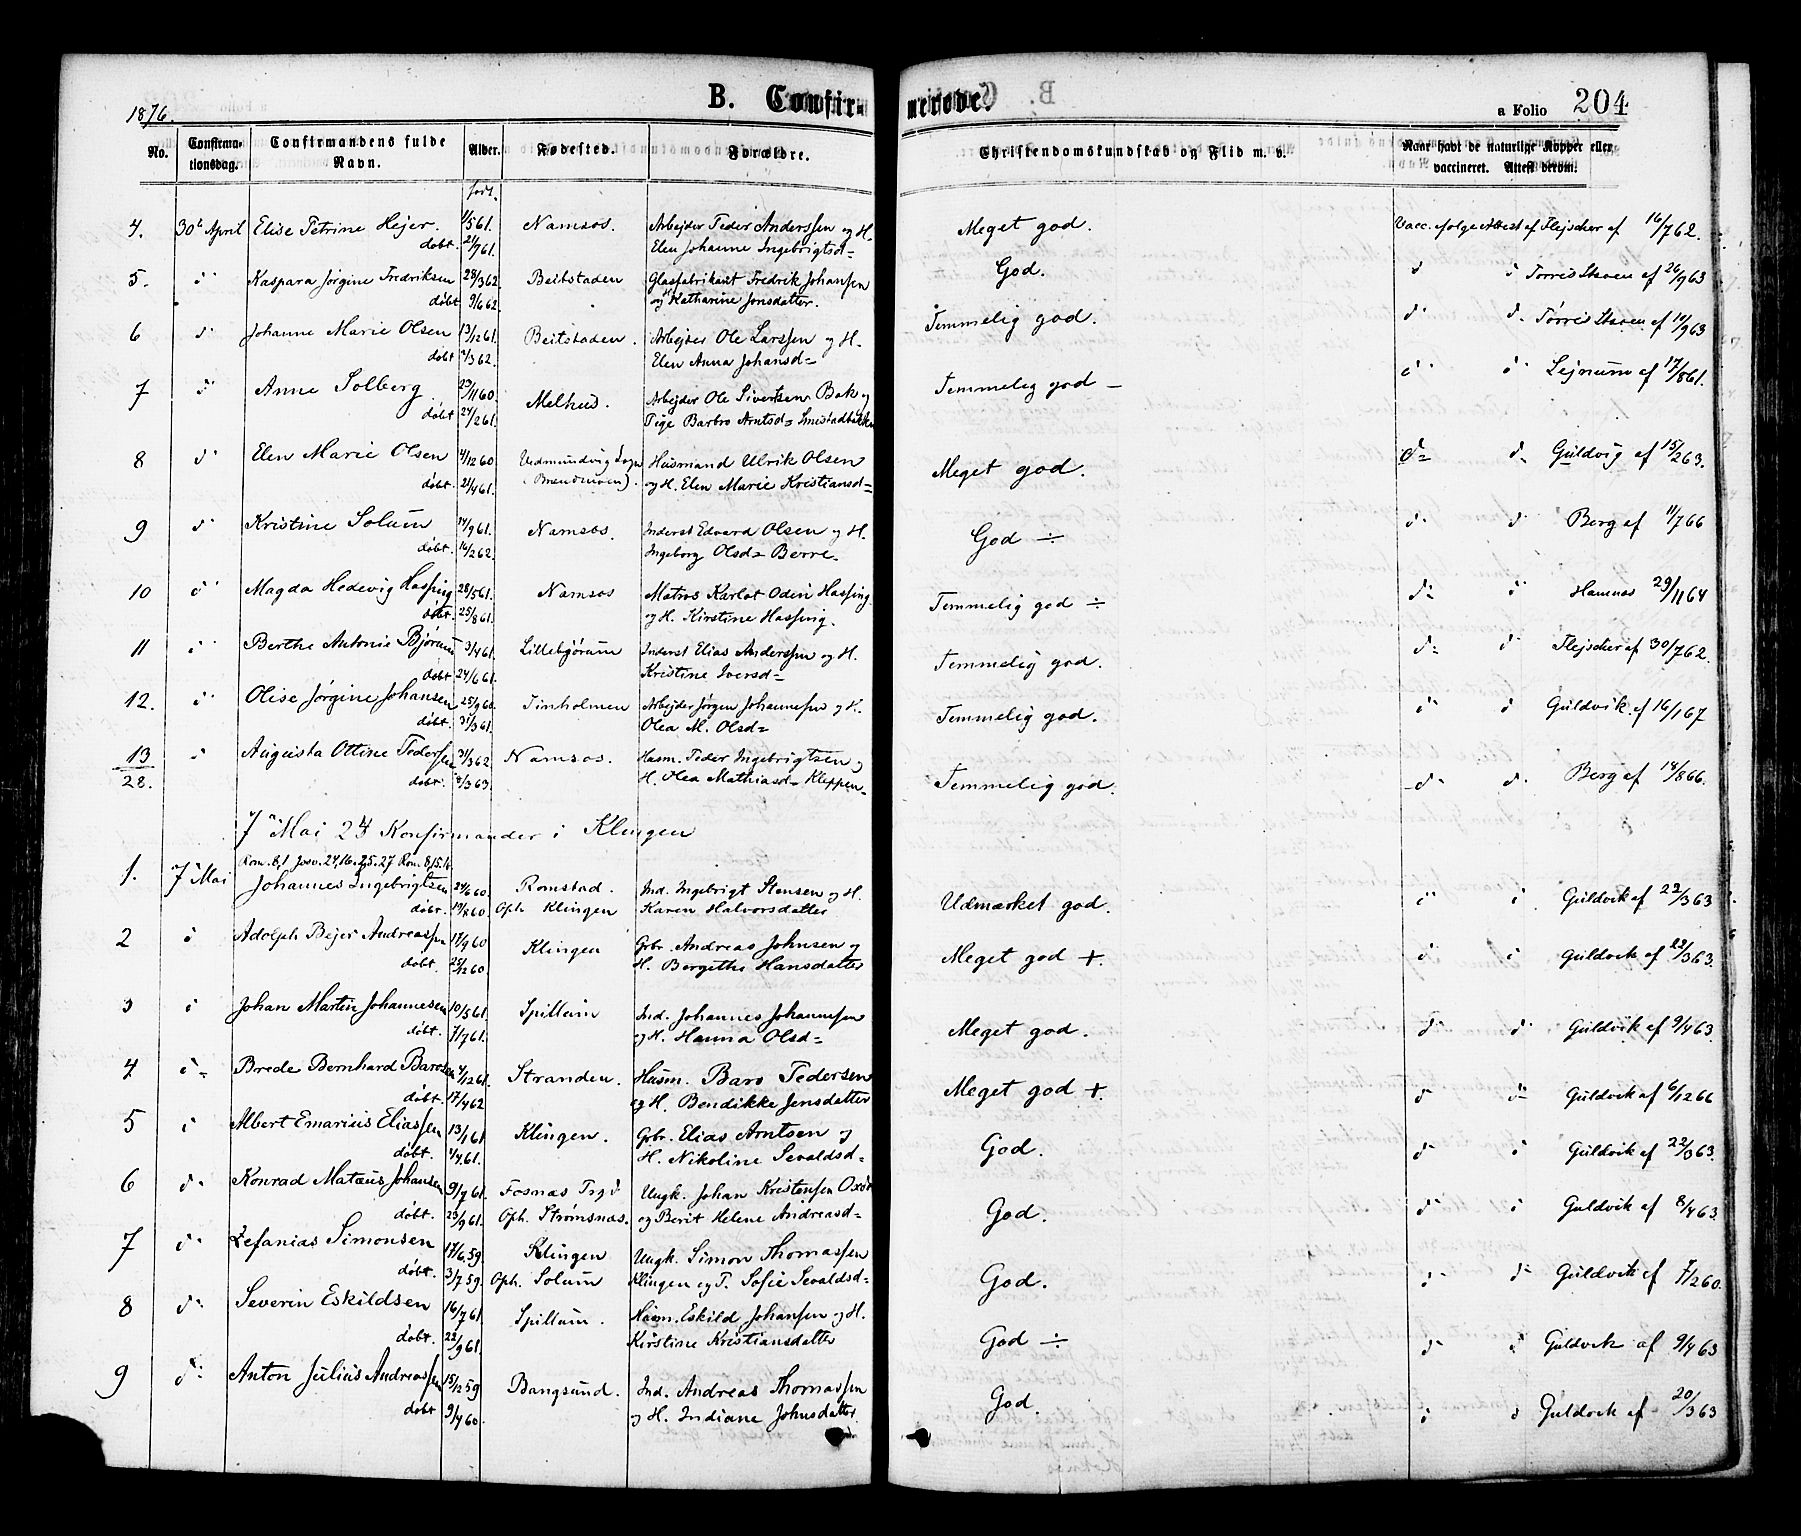 1876.
B. Confirmerede.
a Folio 204
No.
Confirmationsdag.
Confirmandens fulde Navn.
Alder.
Fødested.
Forældre.
Christendomskundskab og Flid m. v.
Naar havt de naturlige Kopper eller vaccineret. Attest derom.
født.
4. 30te April Elise Petrine Hejer. 1/5 61. Namsos. Arbejder Peder Anderssen og H. Meget god. Vacc. efølge Attest af Flejscher af 16/7 62.
døbt. 21/7 61. Elen Johanne Ingebrigtsd=
5. d° Kaspara Jørgine Fredriksen 28/3 62 Beitstaden Glasfabrikant Fredrik Johansen God. d° d° Torris Staven af 26/9 63
døbt 9/6 62. og Katharine Jonsdatter.
6 d° Johanne Marie Olsen 13/12 61. Beitstaden. Arbejder Ole Larssen og H. Temmelig god. d° d° Torris Staven af 14/9 63
døbt 2/3 62. Elen Anna Johansd=
7 d° Anne Solberg 29/11 60. Melhus. Arbejder Ole Sivertsen Bak og Temmelig god – d° d° Lejnum af 17/8 61.
døbt 24/2 61. Pige Barbro Arntsd= Smestadbakken
8 d° Elen Marie Olsen 4/12 60 Vedmundvig Sogn Husmand Ulrik Olsen Meget god. d= d= Guldvig af 15/2 63.
døbt. 21/4 61. og H. Elen Marie Kristiansd=
9 d° Kristine Solum 14/9 61. Namsos. Inderst Edvard Olsen og H. God ÷ d° d° Berg af 11/7 66
døbt. 16/2 62. Ingeborg Olsd= Berre.
10 d° Magda Hedevig Hasfing 28/5 61. Namsos Matros Karlot Odin Hasfing Temmelig god ÷ d= d° Hamnos 29/11 64
døbt. 25/8 61. og H. Kirstine Hasfing.
11 d° Berthe Antonie Bjørum 3/4 61. Lillebjørum Inderst Elias Anderssen og H. Temmelig god. d= d° Flejscher af 30/7 62.
døbt 24/6 61. Kristine Iversd=
12. d° Olise Jørgine Johansen 25/9 60. Timholmen Arbejder Jørgen Johannesen og H. Temmelig god. d° d° Guldvik af 16/1 67
døbt. 31/3 61. Olea M. Olsd=
13 d° Augusta Ottine Pedersen 31/3 62 Namsos. Husm. Peder Ingebrigtsen og Temmelig god. d° d° Berg af 18/8 66.
28. døbt. 8/3 63. H. Olea Mathiasd= Kleppen
7de Mai 24 Konfirmander i Klingen
Rom. 8,1 Josv. 24,16. 25. 27 Rom. 8,15.16
1. 7de Mai Johannes Ingebrigtsen 24/6 60. Romstad. Ind. Ingebrigt Stensen og H. Udmærket god. d° d° Guldvik af 22/3 63
døbt. 19/8 60. Oph. Klingen Karen Halvorsdatter
2 d° Adolph Bejer Andreassen 17/9 60 Klingen Grbr. Andreas Johnsen og Meget god +. d° d° Guldvik af 22/3 63.
døbt. 25/12 60. H. Bergithe Hansdatter
3 d° Johan Martin Johannesen 10/5 61. Spillum Ind. Johannes Johannesen Meget god. d° d° Guldvik af 9/4 63.
døbt. 7/7 61. og H. Hanna Olsd=
4 d= Brede Bernhard Barosen 4/12 61. Stranden. Husm. Baro Pedersen Meget god + d° d° Guldvik af 6/12 66
døbt. 17/4 62 og H. Bendikke Jensdatter
5 d° Albert Emarius Eliassen 13/1 61 Klingen. Grbr. Elias Arntsen og God. d° d° Guldvik af 22/3 63.
døbt. 1/4 61. H. Nikoline Sevaldsd=
6 d° Konrad Matæus Johansen 9/7 61. Fosnæs Prgd Ungk. Johan Kristensen God. d° d° Guldvik af 8/4 63
døbt. 29/9 61. Oph. Strømsnæs. og Berit Helene Andreasd=
7 d° Zefanias Simonsen 17/6 59. Klingen Ungk. Simon Thomassen God. d° d° Guldvik af 7/2 60.
døbt. 3/7 59. Oph. Solum Klingen og P. Sofie Sevaldsd=
8 d° Severin Eskildsen 16/7 61. Spillum. Husm. Eskild Johansen og H. God ÷ d° d° Guldvik af 9/4 63
døbt. 22/9 61. Kirstine Kristiansdatter
9 d° Anton Julius Andreassen 15/12 59 Bangsund. Ind. Andreas Thomassen God. d° d° Guldvik af 20/3 63
døbt 9/4 60. og H. Indiane Johnsdatter